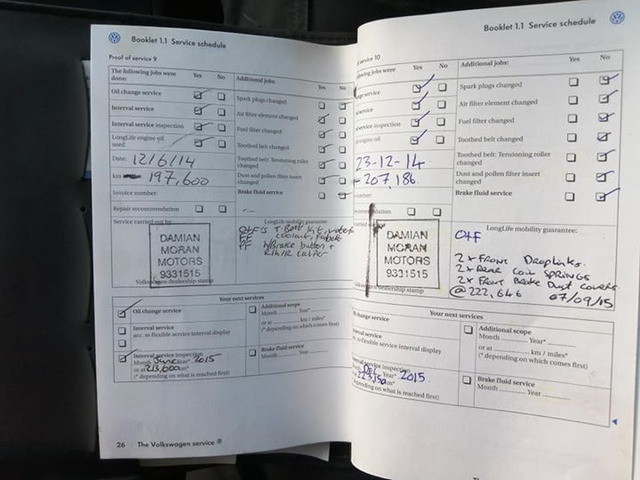 Booklet 1.1 Service schedule
Proof of service 9
The following jobs were done: Yes No
Oil change service
Interval service
Interval service inspection
LongLife engine oil used
Date: 12/6/14
km 197,600
Invoice number:
Repair recommendation
Additional jobs: Yes No
Spark plugs changed
Air filter element changed
Fuel filter changed
Toothed belt changed
Toothed belt: Tensioning roller changed
Dust and pollen filter insert changed
Brake fluid service
Service carried out by:
DAMIAN
MORAN
MOTORS
9331515
Volkswagen dealership stamp
LongLife mobility guarantee:
Your next services
Oil change service
Interval service
acc. to flexible service interval display
Interval service inspection
Month June 2015
or at 213,600 km*
(* depending on what is reached first)
Additional scope
Month Year*
or at km / miles*
(* depending on which comes first)
Brake fluid service
Month Year
26 The Volkswagen service ®
Booklet 1.1 Service schedule
of service 10
following jobs were Yes No
service
service
service inspection
engine oil
23-12-14
207,186
number:
Additional jobs: Yes No
Spark plugs changed
Air filter element changed
Fuel filter changed
Toothed belt changed
Toothed belt: Tensioning roller changed
Dust and pollen filter insert changed
Brake fluid service
DAMIAN
MORAN
MOTORS
9331515
dealership stamp
LongLife mobility guarantee:
OFF
2x Front Droplinks.
2x Rear Coil Springs
2x Front Brake Dust Covers
@ 222,646 07/09/15
Your next services
change service
service
to flexible service interval display
service inspection
Year* 2015
(* depending on what is reached first)
Additional scope
Month Year*
or at km / miles*
(* depending on which comes first)
Brake fluid service
Month Year